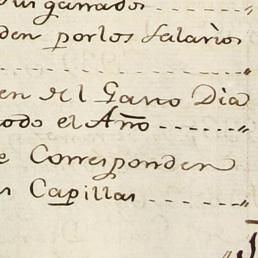 sus ganados......"
den por los salarios
......"
en del Gasto Dia
todo el Año......"
e Corresponden
s Capillas......"